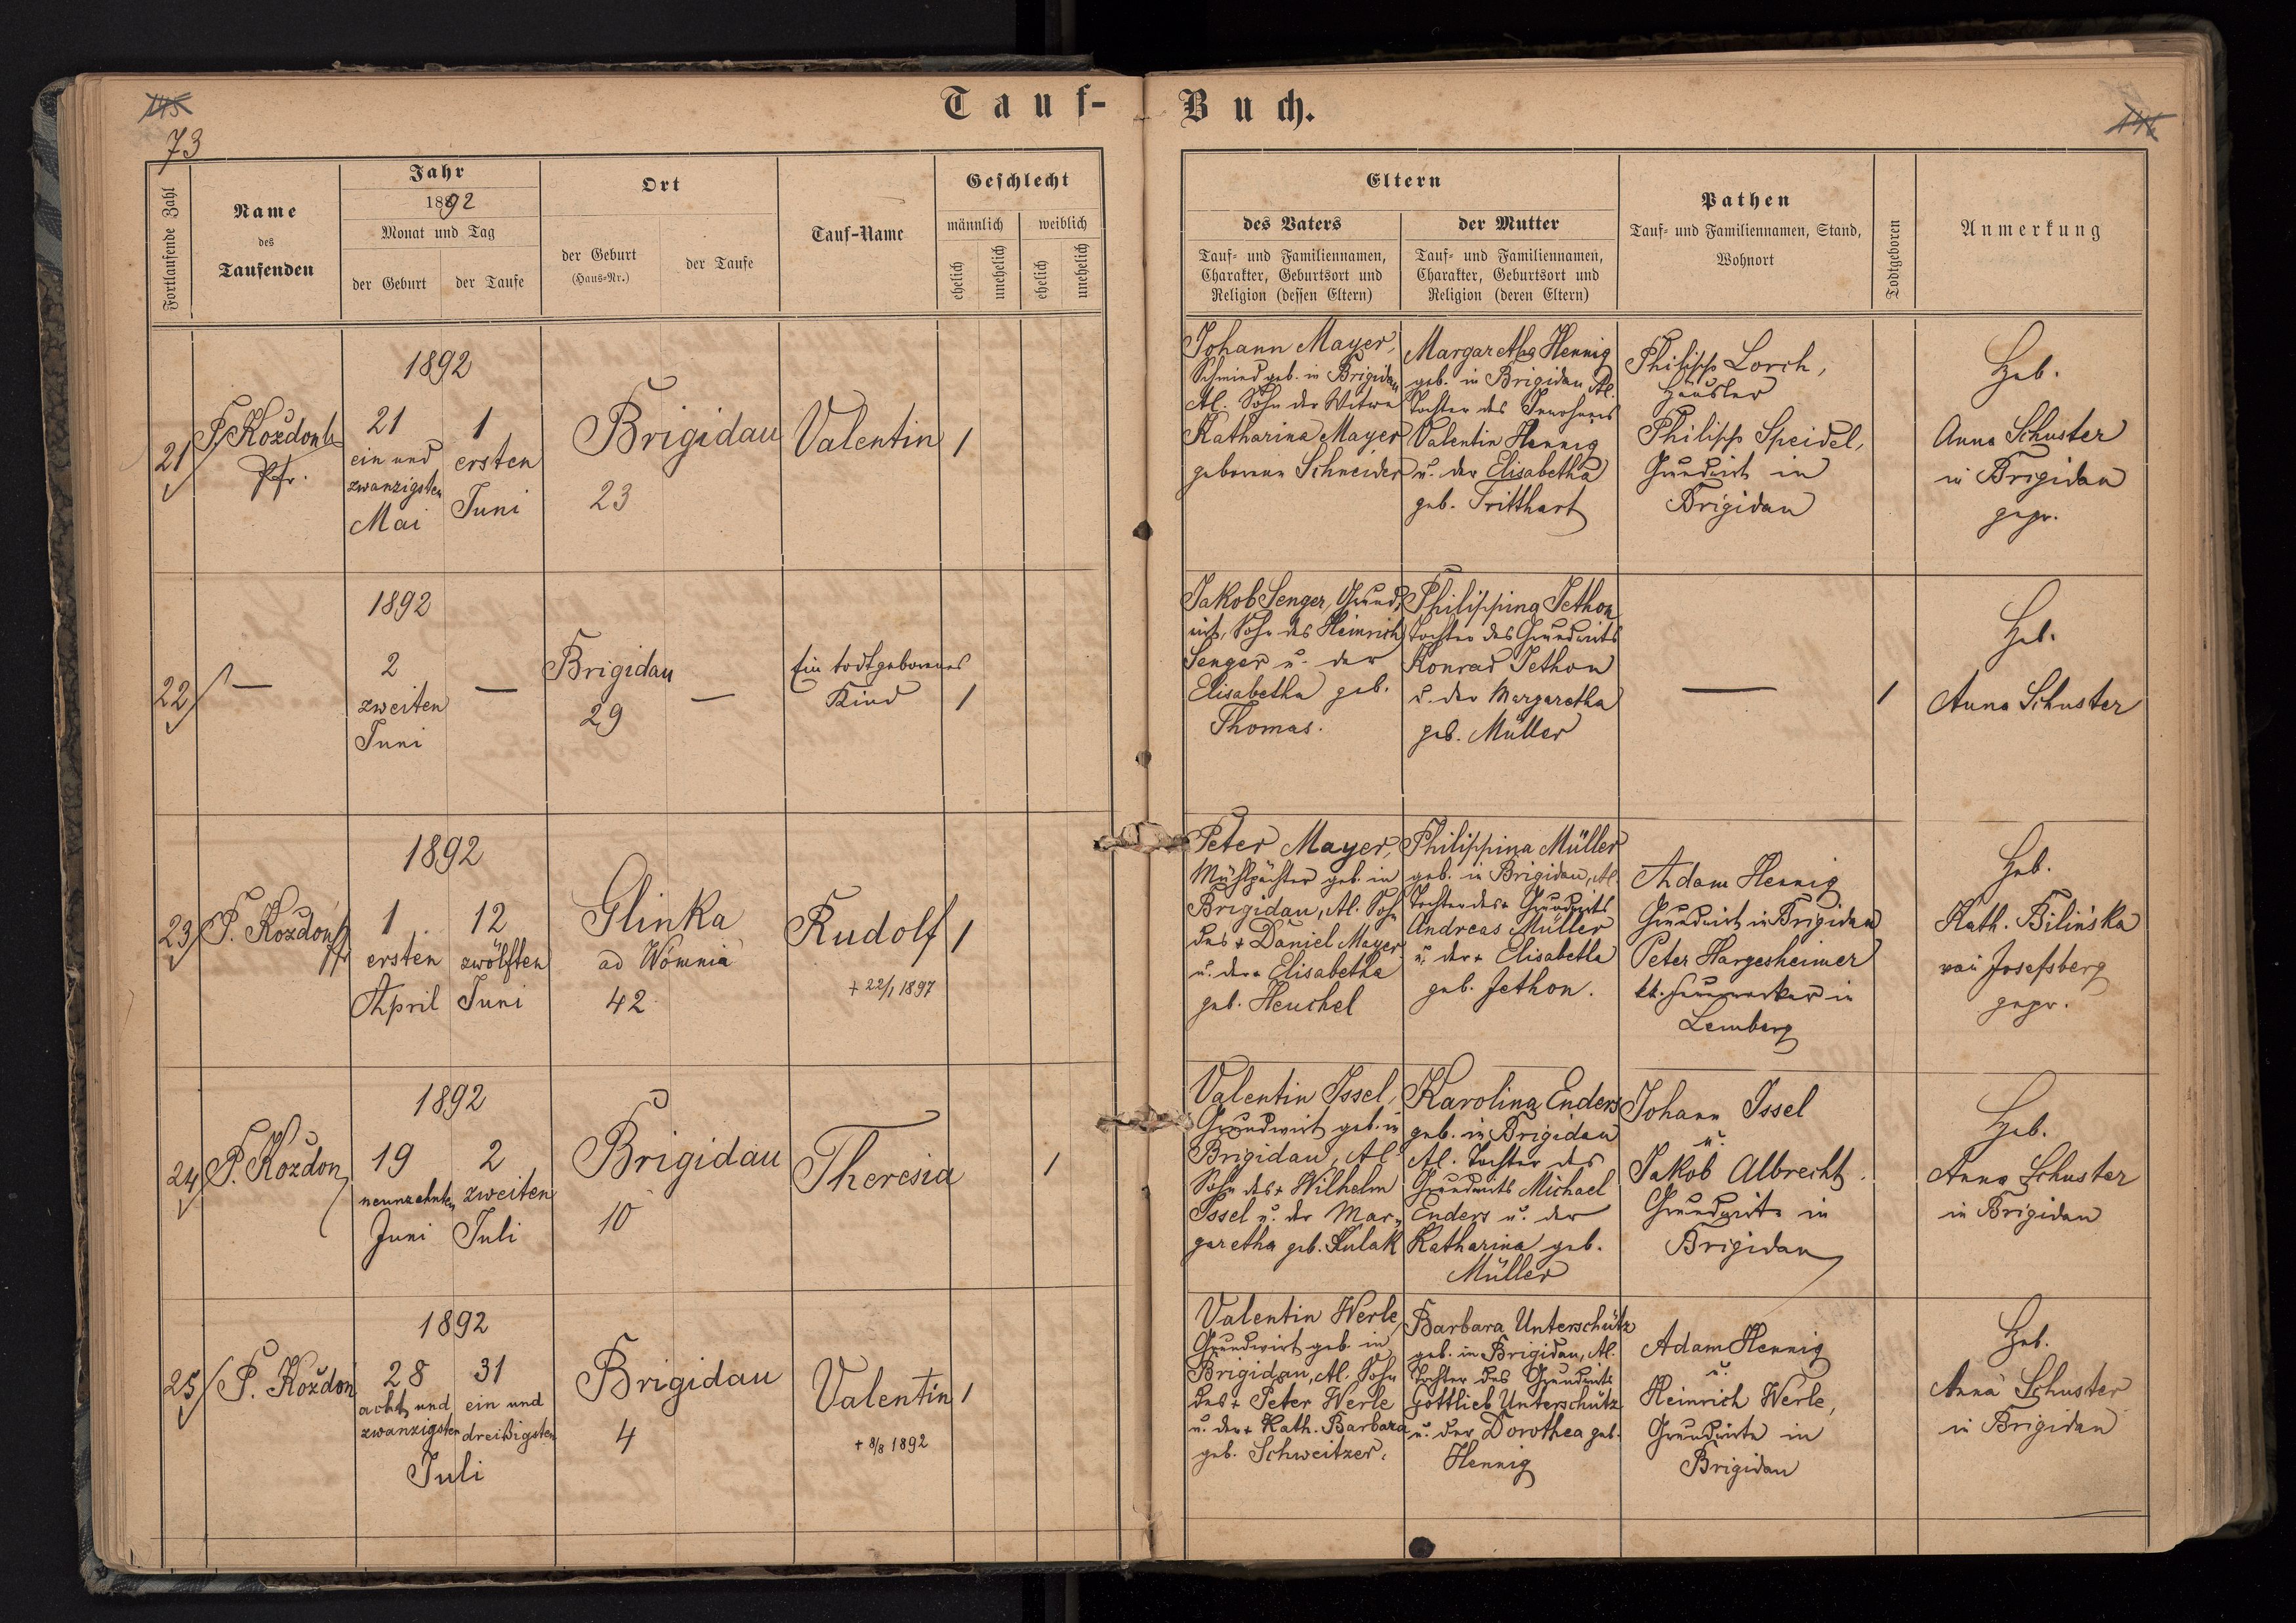 145
73
Tauf-Buch.
146
Fortlaufende Zahl
Name
des
Taufenden
Jahr
1892
Monat und Tag
der Geburt
der Taufe
Ort
der Geburt
(Haus-Nr.)
der Taufe
Tauf-Name
Geschlecht
männlich
weiblich
ehelich
unehelich
ehelich
unehelich
Eltern
des Vaters
Tauf- und Familiennamen,
Charakter, Geburtsort und
Religion (dessen Eltern)
der Mutter
Tauf- und Familiennamen,
Charakter, Geburtsort und
Religion (deren Eltern)
Pathen
Tauf- und Familiennamen, Stand,
Wohnort
Todtgeboren
Anmerkung
21
P. Kozdon
Pfr.
1892
21
ein und
zwanzigsten
Mai
1
ersten
Juni
Brigidau
23
Valentin
1
Johann Mayer,
Schmied geb. in Brigidau
Al. Sohn der Witwe
Katharina Mayer
geborenen Schneider
Margaretha Hennig
geb. in Brigidau Al.
Tochter des Inwohners
Valentin Hennig
u. der Elisabetha
geb. Tritthart
Philipp Lorch,
Häusler
Philipp Speidel,
Grundwirt in
Brigidau
Heb.
Anna Schuster
in Brigidau
gepr.
22
—
1892
2
zweiten
Juni
—
Brigidau
29
—
Ein todtgeborenes
Kind
1
Jakob Senger, Grund-
wirt, Sohn des Heinrich
Senger u. der
Elisabetha geb.
Thomas.
Philippina Jethon
Tochter des Grundwirts
Konrad Jethon
u. der Margaretha
geb. Müller
—
1
Heb.
Anna Schuster
23
P. Kozdon
Pfr
1892
1
ersten
April
12
zwölften
Juni
Glinka
ad Womnia
42
Rudolf
+ 22/1 1897
1
Peter Mayer,
Mühlpächter geb. in
Brigidau, Al. Sohn
des + Daniel Mayer
u. der + Elisabetha
geb. Heuchel
Philippina Müller
geb. in Brigidau, Al.
Tochter des + Grundwirts
Andreas Müller
u. der + Elisabetha
geb. Jethon.
Adam Hennig
Grundwirt in Brigidau
Peter Hargesheimer
in
Lemberg
Heb.
Kath. Bilińska
Josefsberg
gepr.
24
P. Kozdon
1892
19
neunzehnten
Juni
2
zweiten
Juli
Brigidau
10
Theresia
1
Valentin Issel,
Grundwirt geb. in
Brigidau, Al.
Sohn des + Wilhelm
Issel u. der Mar-
garetha geb. Kulak
Karolina Enders
geb. in Brigidau
Al. Tochter des
Grundwirts Michael
Enders u. der
Katharina geb.
Müller
Johann Issel
u.
Jakob Albrecht.
Grundwirte in
Brigidau
Heb.
Anna Schuster
in Brigidau
25
P. Kozdon
1892
28
acht und
zwanzigsten
31
ein und
dreißigsten
Juli
Brigidau
4
Valentin
+ 8/8 1892
1
Valentin Werle,
Grundwirt geb. in
Brigidau, Al. Sohn
des + Peter Werle
u. der + Kath. Barbara
geb. Schweitzer.
Barbara Unterschütz
geb. in Brigidau, Al.
Tochter des Grundwirts
Gottlieb Unterschütz
u. der Dorothea geb.
Hennig
Adam Hennig
u.
Heinrich Werle,
Grundwirte in
Brigidau
Heb.
Anna Schuster
in Brigidau